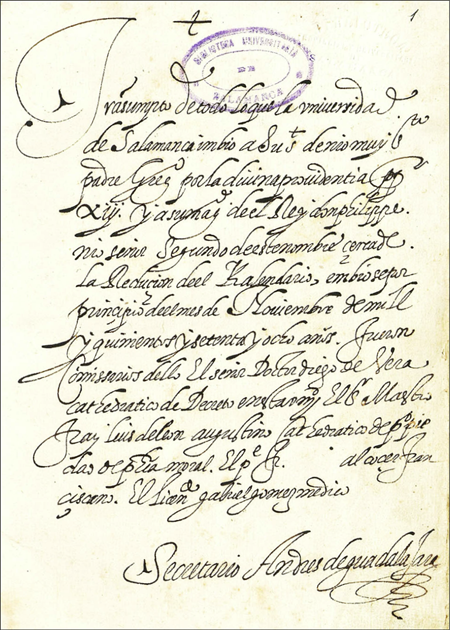 1
BIBLIOTECA UNIVERSITARIA
DE
SALAMANCA
Trasumpto de todo lo que la vniversidad
de Salamanca imbio a Su Sᵗ de nro muy sᵗᵒ
padre Greg.º por la divina providentia pp
Xiij. y a su magᵈ deel Rey don philippe.
nro señor Segundo de este nombre cerca de
la Reducion deel Kalendario, embiose por
principio deel mes de Noviembre de mill
y quinientos y setenta y ocho años. fueron
Comissarios dello El señor Doctor diego de Vera
cathedratico de Decreto en sta vnⁱ El Sʳ Maestro
fray luis de leon augustino cathedratico de ppie
dad de phia moral. El pᵉ fr. alcocer fran
ciscano. El licenᵈᵒ gabriel gomez medico
Secretario Andres de guadalajara